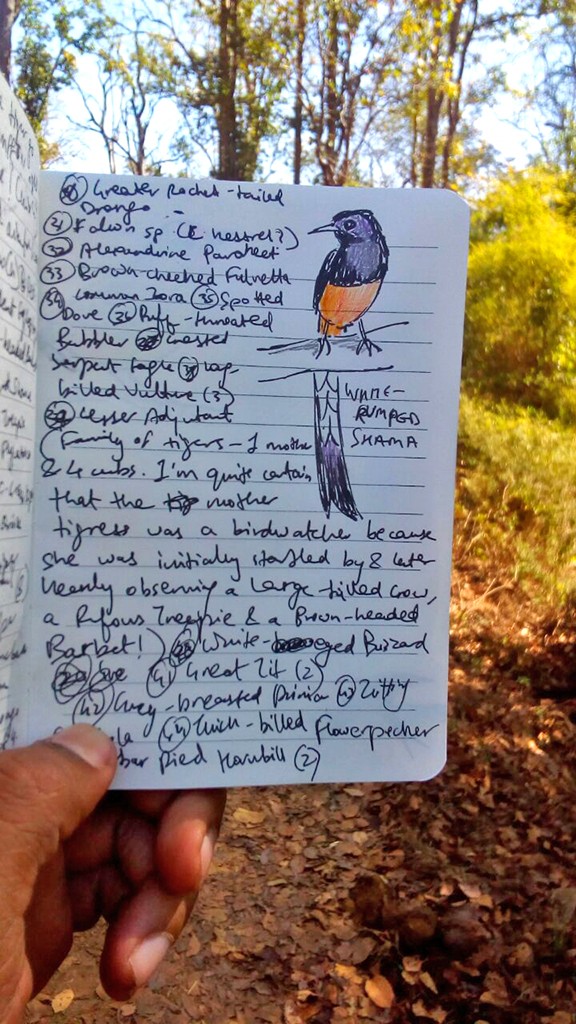 Greater Racket-tailed
Drongo
31 Falcon sp. (Kestrel?)
32 Alexandrine Parakeet
33 Brown-cheeked Fulvetta
34 Common Iora 35 Spotted
Dove 36 Puff-throated
Babbler Crested
Serpent Eagle
billed Vulture (3)
Lesser Adjutant
(Family of tigers - 1 mother
& 4 cubs. I'm quite certain
that the mother
tigress was a birdwatcher because
she was initially startled by & later
keenly observing a Large-billed Crow,
a Rufous Treepie & a Brown-headed
Barbet!) White-eyed Buzzard
41 Great Tit (2)
42 Grey-breasted Prinia 43 Zitting
44 Thick-billed Flowerpecker
Pied Hornbill (2)
WHITE-
RUMPED
SHAMA